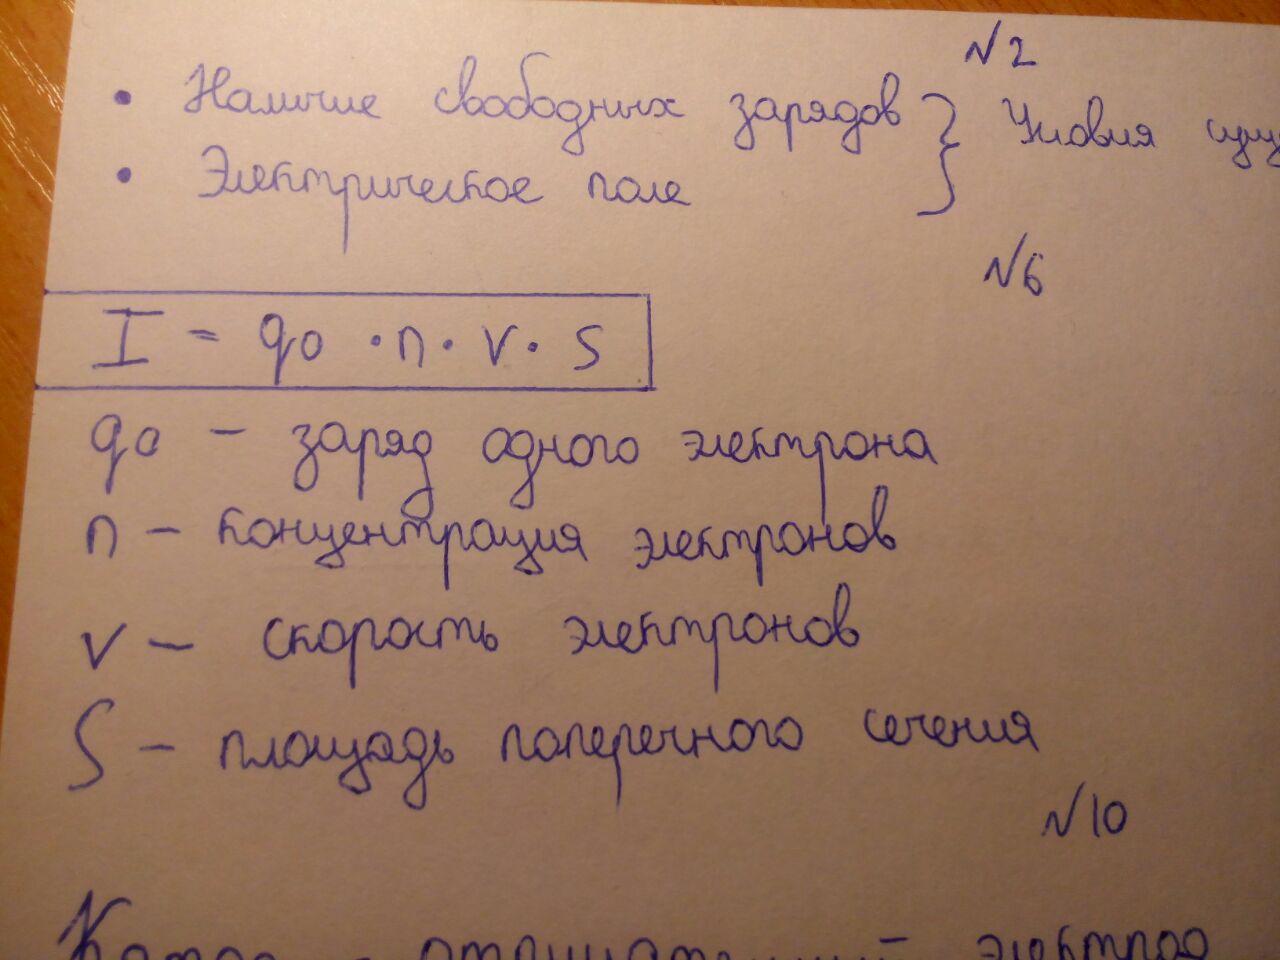 №2
• Наличие свободных зарядов } Условия
• Электрическое поле
№6
I = q0 · n · v · S
q0 – заряд одного электрона
n – концентрация электронов
v – скорость электронов
S – площадь поперечного сечения
№10
Катод - отрицательный электрод